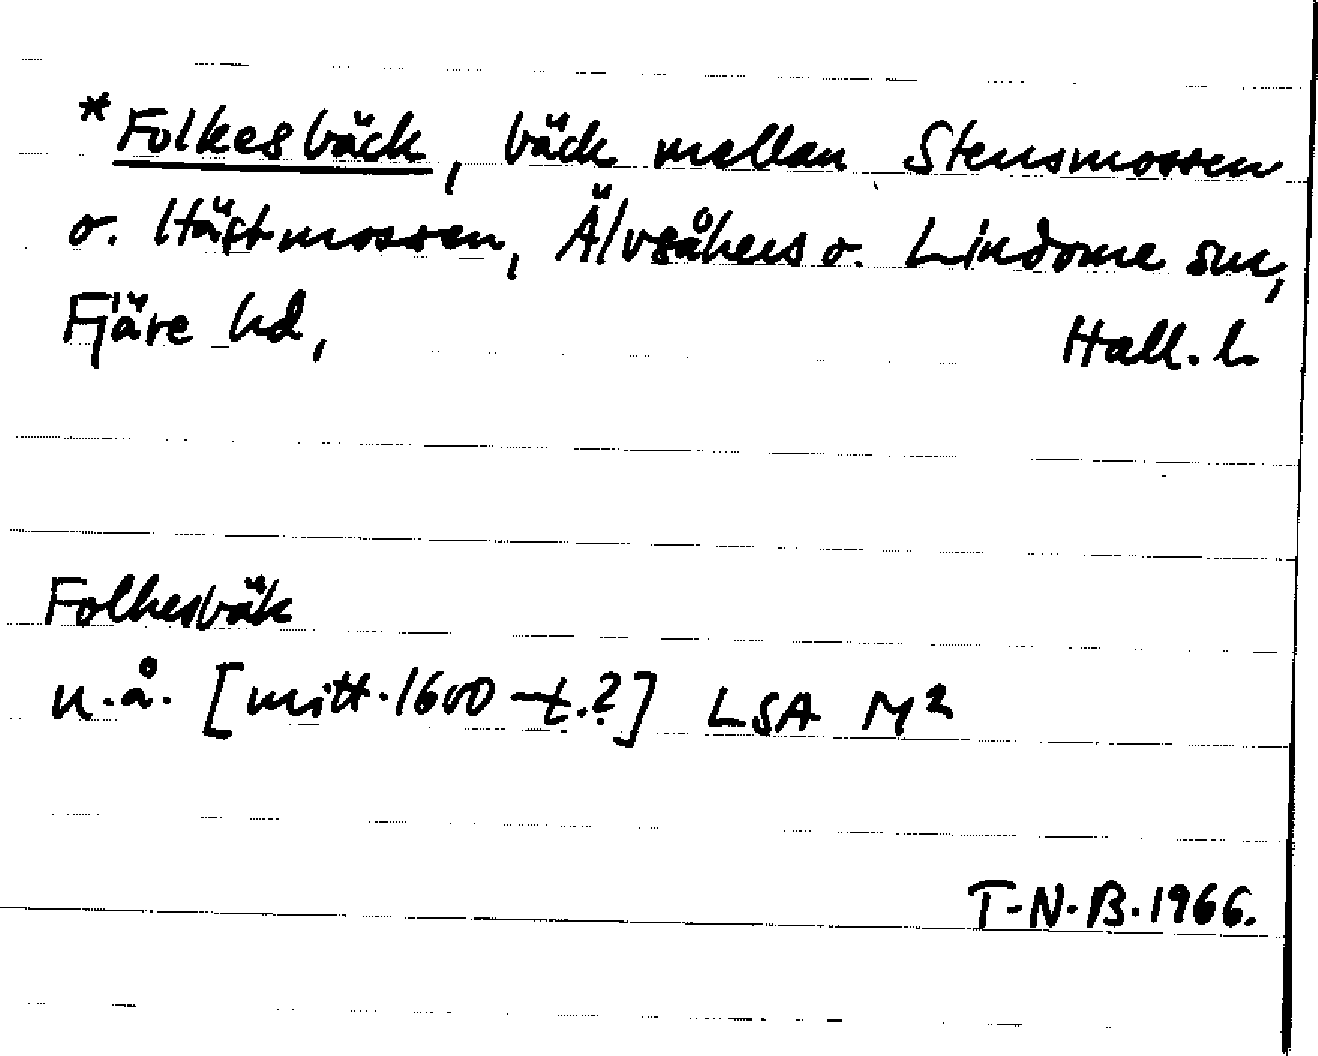 *Folkesbäck, bäck mellan Stensmossen
o. Hästmossen, Älvsåkers o. Lindome snr,
Fjäre hd, Hall. l.
Folkesbäk
u.å. [mitt. 1600-t.?] LSA M²
T-N.B. 1966.